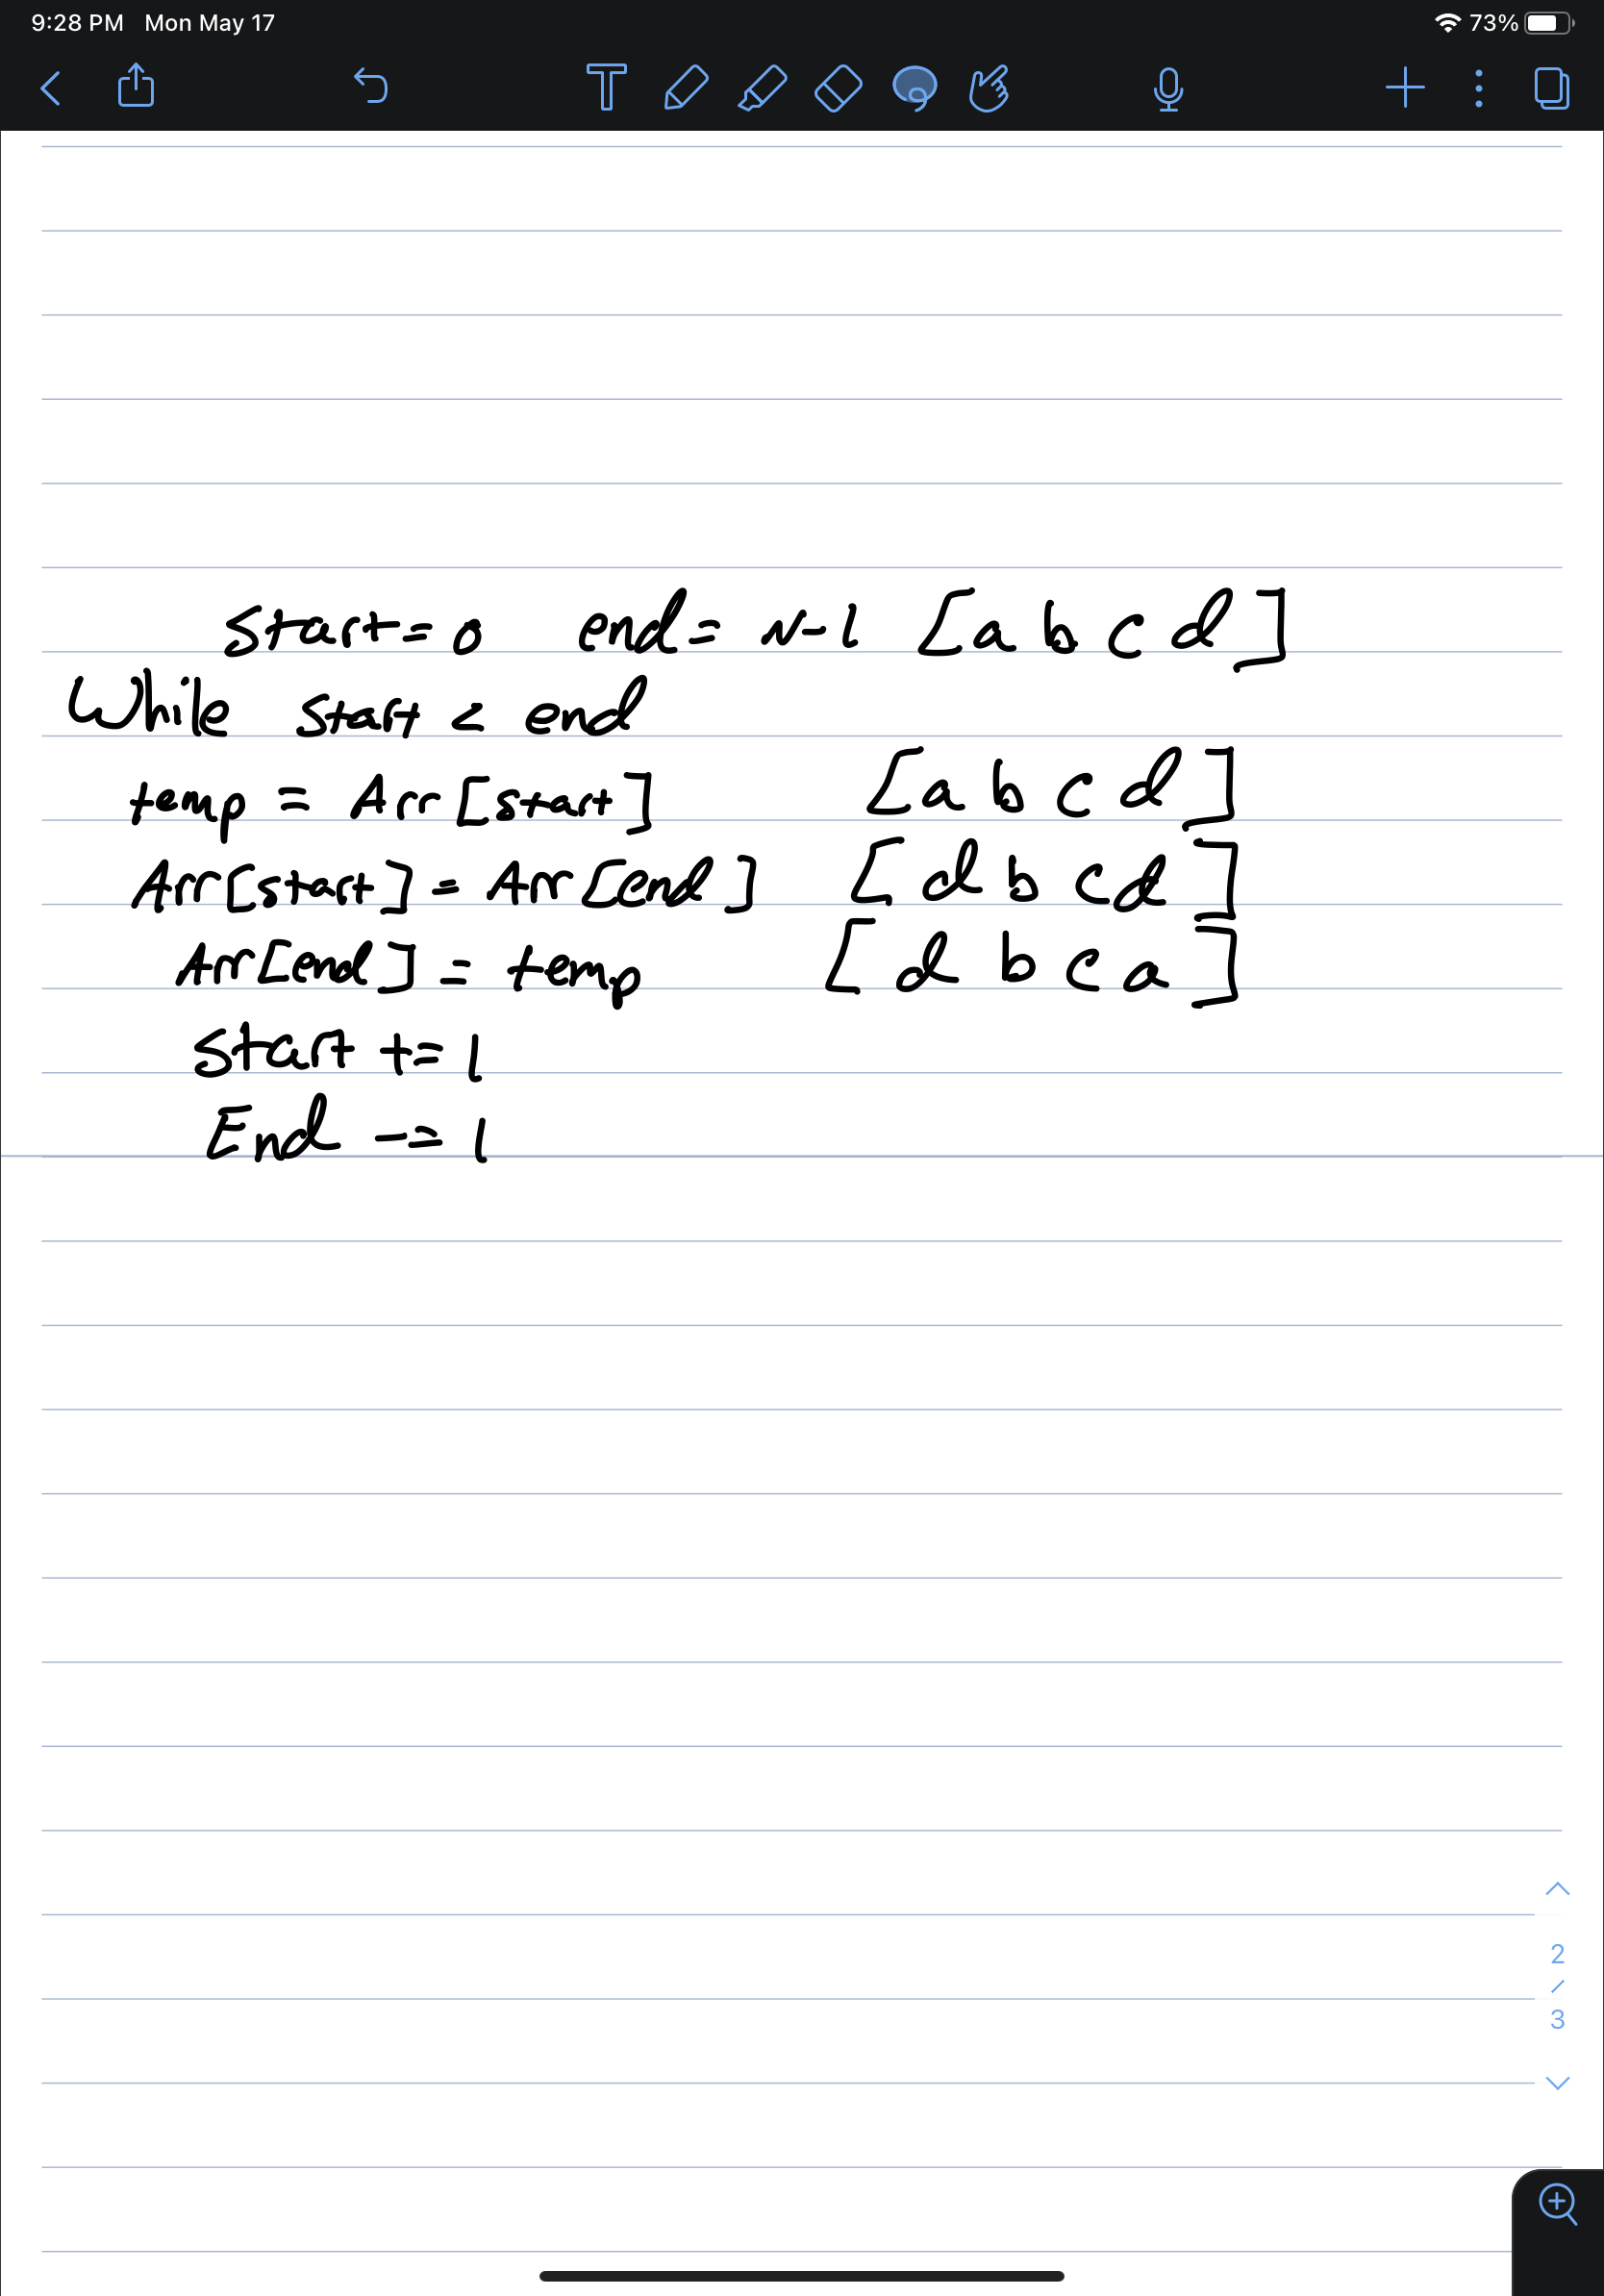 9:28 PM Mon May 17 73%
T
start = 0 end = n-1 [a b c d]
While start < end
temp = Arr[start] [a b c d]
Arr[start] = Arr[end] [d b c d]
Arr[end] = temp [d b c a]
start += 1
End -= 1
2
/
3